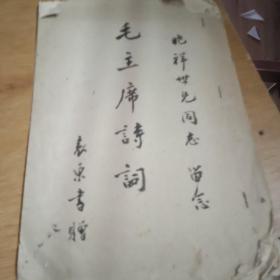 晓祥世兄同志 留念
毛主席詩詞
袁東書贈